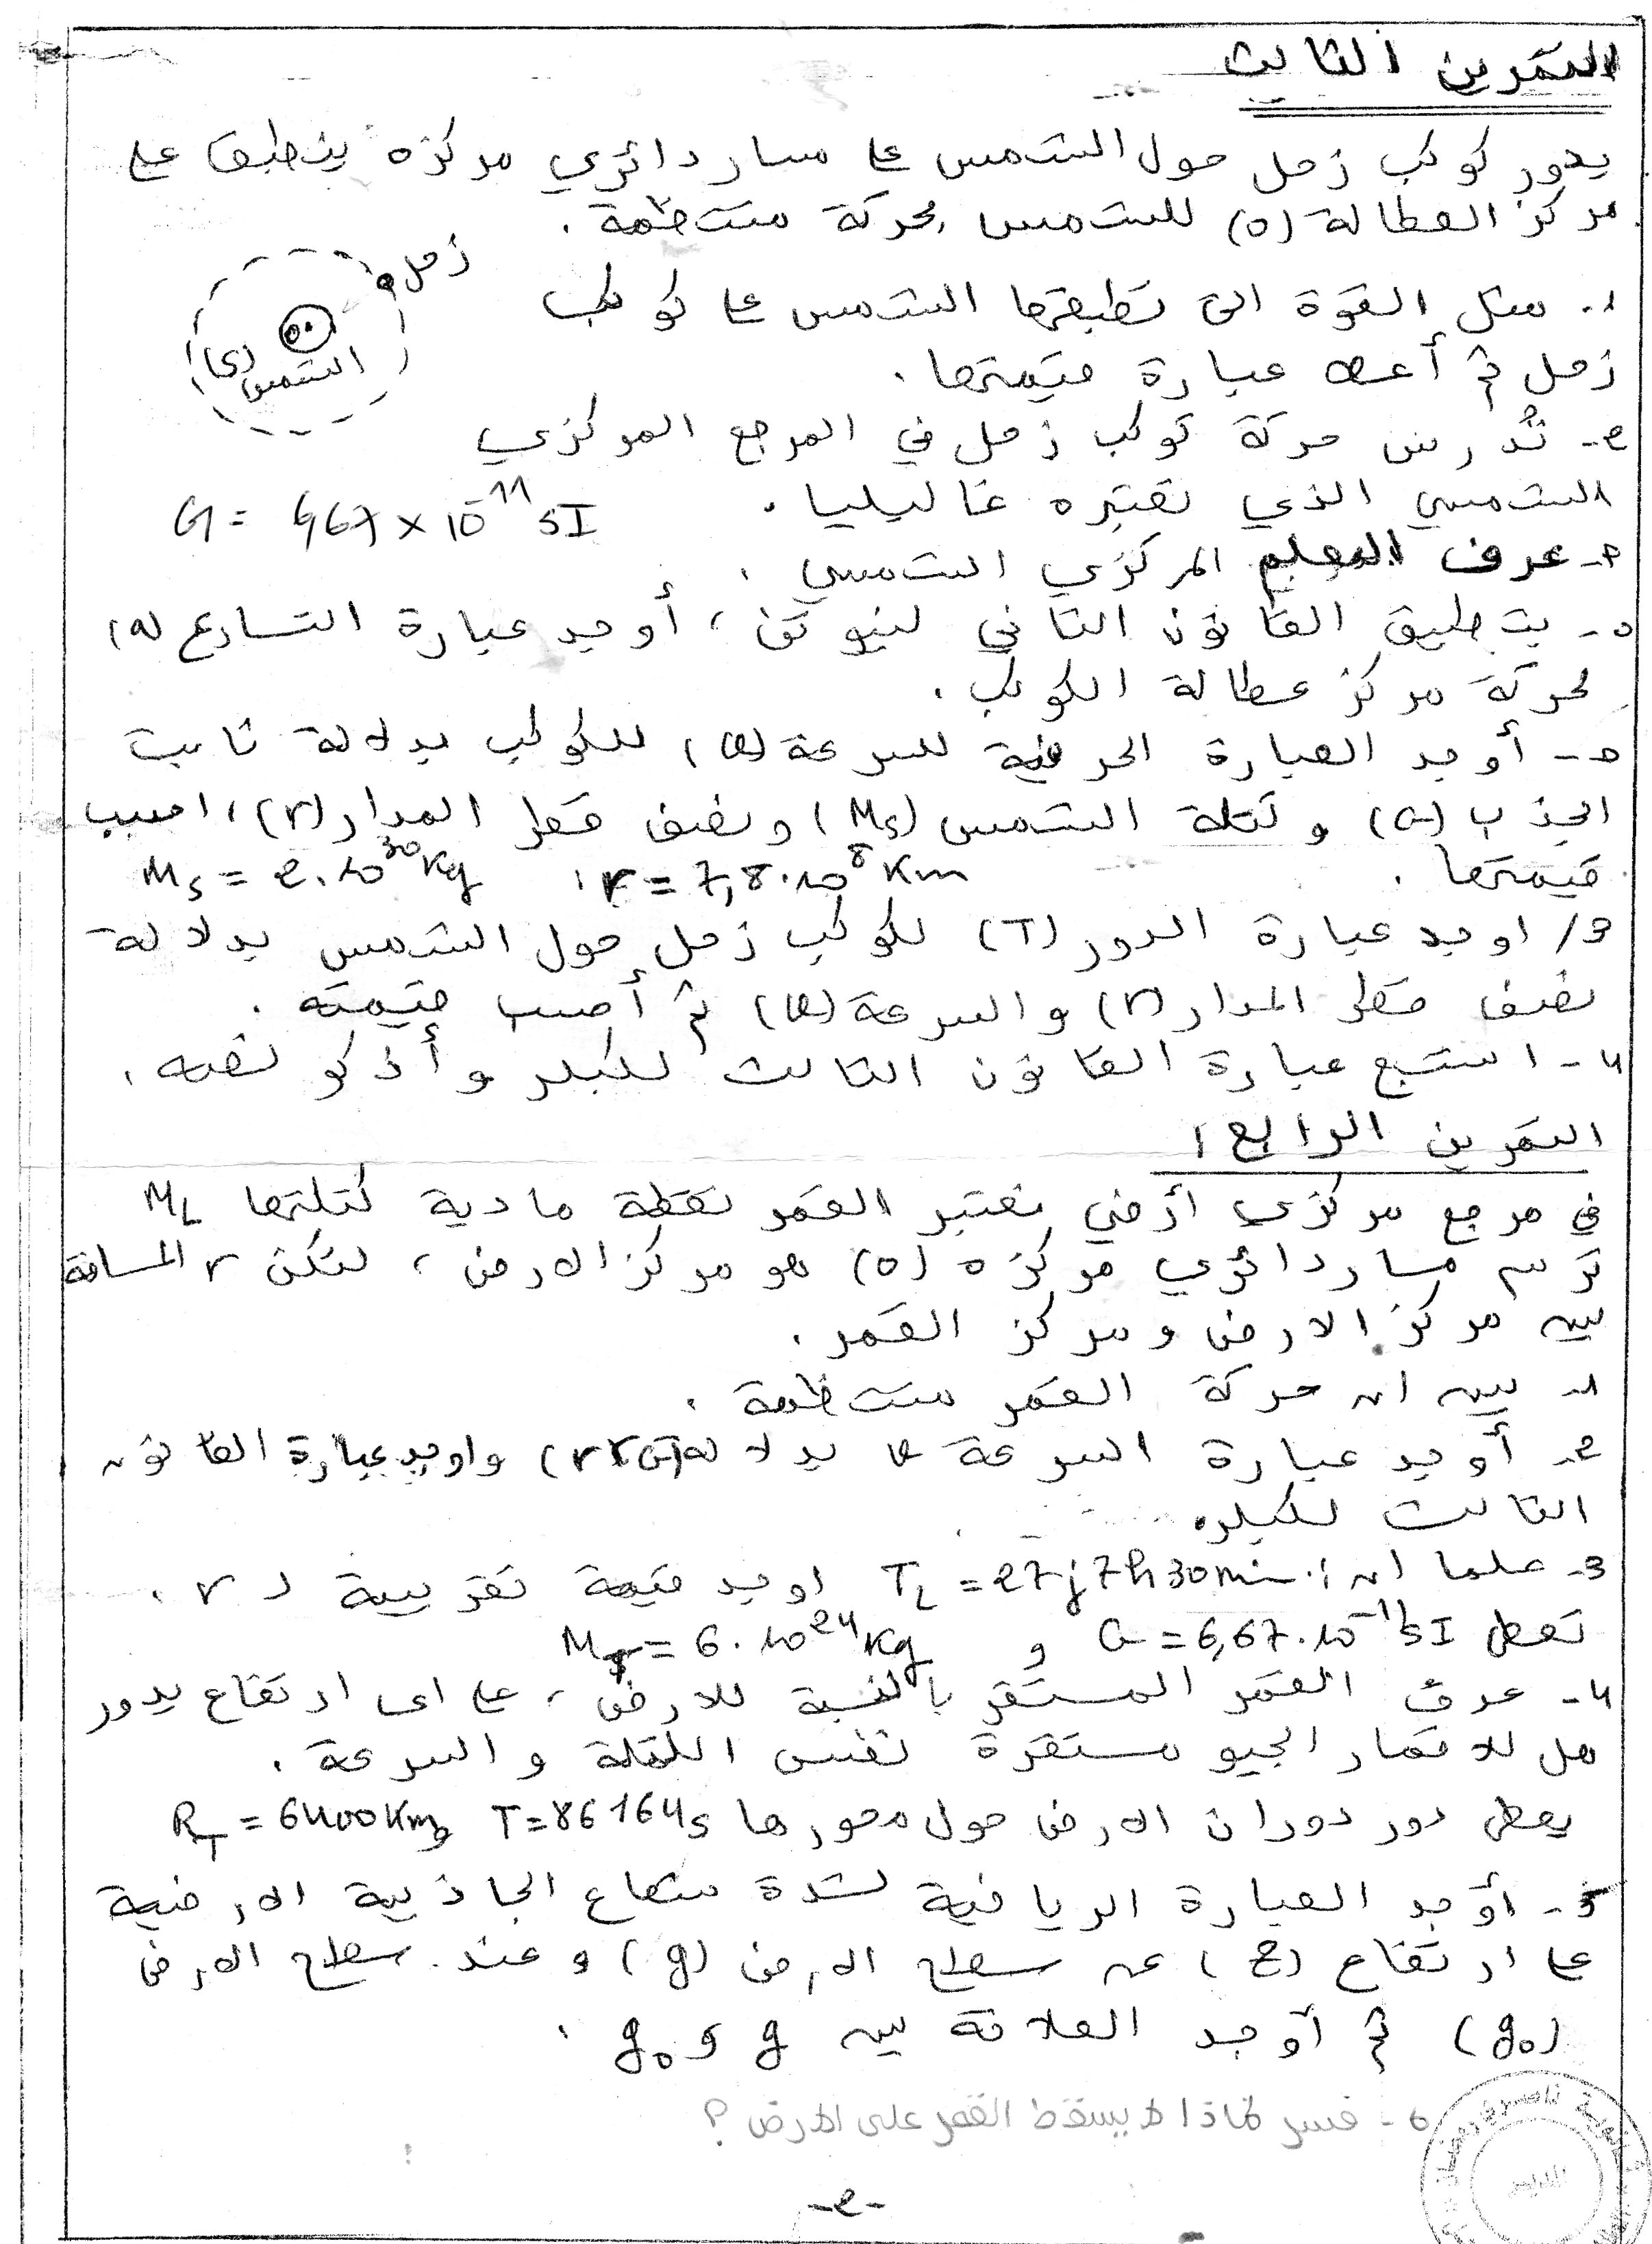 التمرين الثالث
يدور كوكب زحل حول الشمس على مسار دائري مركزه ينطبق على
مركز العطالة (o) للشمس بحركة منتظمة .
زحل
1. مثل القوة التي تطبقها الشمس على كوكب
الشمس (S)
زحل ثم أعط عبارة قيمتها .
2- تُدرس حركة كوكب زحل في المرجع المركزي
الشمسي الذي نعتبره غاليليا .
G = 6,67 x 10^-11 SI
- عرف المعلم المركزي الشمسي .
- بتطبيق القانون الثاني لنيوتن ، أوجد عبارة التسارع (a)
لحركة مركز عطالة الكوكب .
- أوجد العبارة الحرفية للسرعة (v) للكوكب بدلالة ثابت
الجذب (G) و كتلة الشمس (Ms) ونصف قطر المدار (r) ، احسب
قيمتها . r = 7,8.10^8 Km ، Ms = 2.10^30 Kg
3/ اوجد عبارة الدور (T) لكوكب زحل حول الشمس بدلالة
نصف قطر المدار (r) والسرعة (v) ثم أحسب قيمته .
4- استنتج عبارة القانون الثالث لكبلر و أذكر نصه .
التمرين الرابع :
في مرجع مركزي أرضي نعتبر القمر نقطة مادية كتلتها ML
ترسم مسار دائري مركزه (o) هو مركز الارض ، لتكن r المسافة
بين مركز الارض و مركز القمر .
1- بين ان حركة القمر منتظمة .
2- أوجد عبارة السرعة v بدلالة واوجد عبارة القانون
الثالث لكبلر .
3- علما ان : TL = 27j 7h 30min اوجد قيمة تقريبية لـ r .
تعطى G = 6,67.10^-11 SI و MT = 6.10^24 Kg
4- عرف القمر المستقر بالنسبة للارض ، على اي ارتفاع يدور
هل للاقمار الجيو مستقرة نفس الكتلة و السرعة .
يعطى دور دوران الارض حول محورها T = 86164s و RT = 6400Km
5- أوجد العبارة الرياضية لشدة شعاع الجاذبية الارضية
على ارتفاع (z) عن سطح الارض (g) و عند سطح الارض
(g0) ثم أوجد العلاقة بين g و g0 .
6- فسر لماذا لا يسقط القمر على الارض ؟
-2-